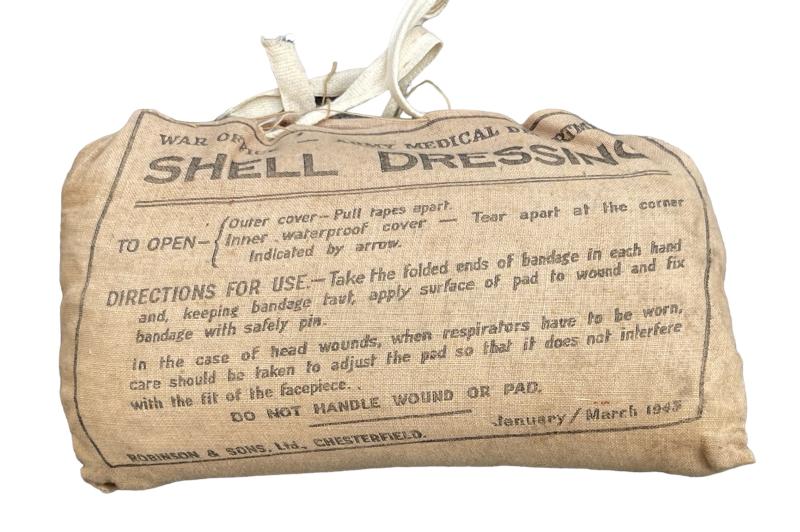 WAR OFFICE — ARMY MEDICAL DEPARTM
SHELL DRESSING
TO OPEN— { Outer cover — Pull tapes apart.
Inner waterproof cover — Tear apart at the corner
Indicated by arrow.
DIRECTIONS FOR USE.—Take the folded ends of bandage in each hand
and, keeping bandage taut, apply surface of pad to wound and fix
bandage with safely pin.
In the case of head wounds, when respirators have to be worn,
care should be taken to adjust the pad so that it does not interfere
with the fit of the facepiece..
DO NOT HANDLE WOUND OR PAD.
January/March 1943
ROBINSON & SONS, Ltd., CHESTERFIELD.